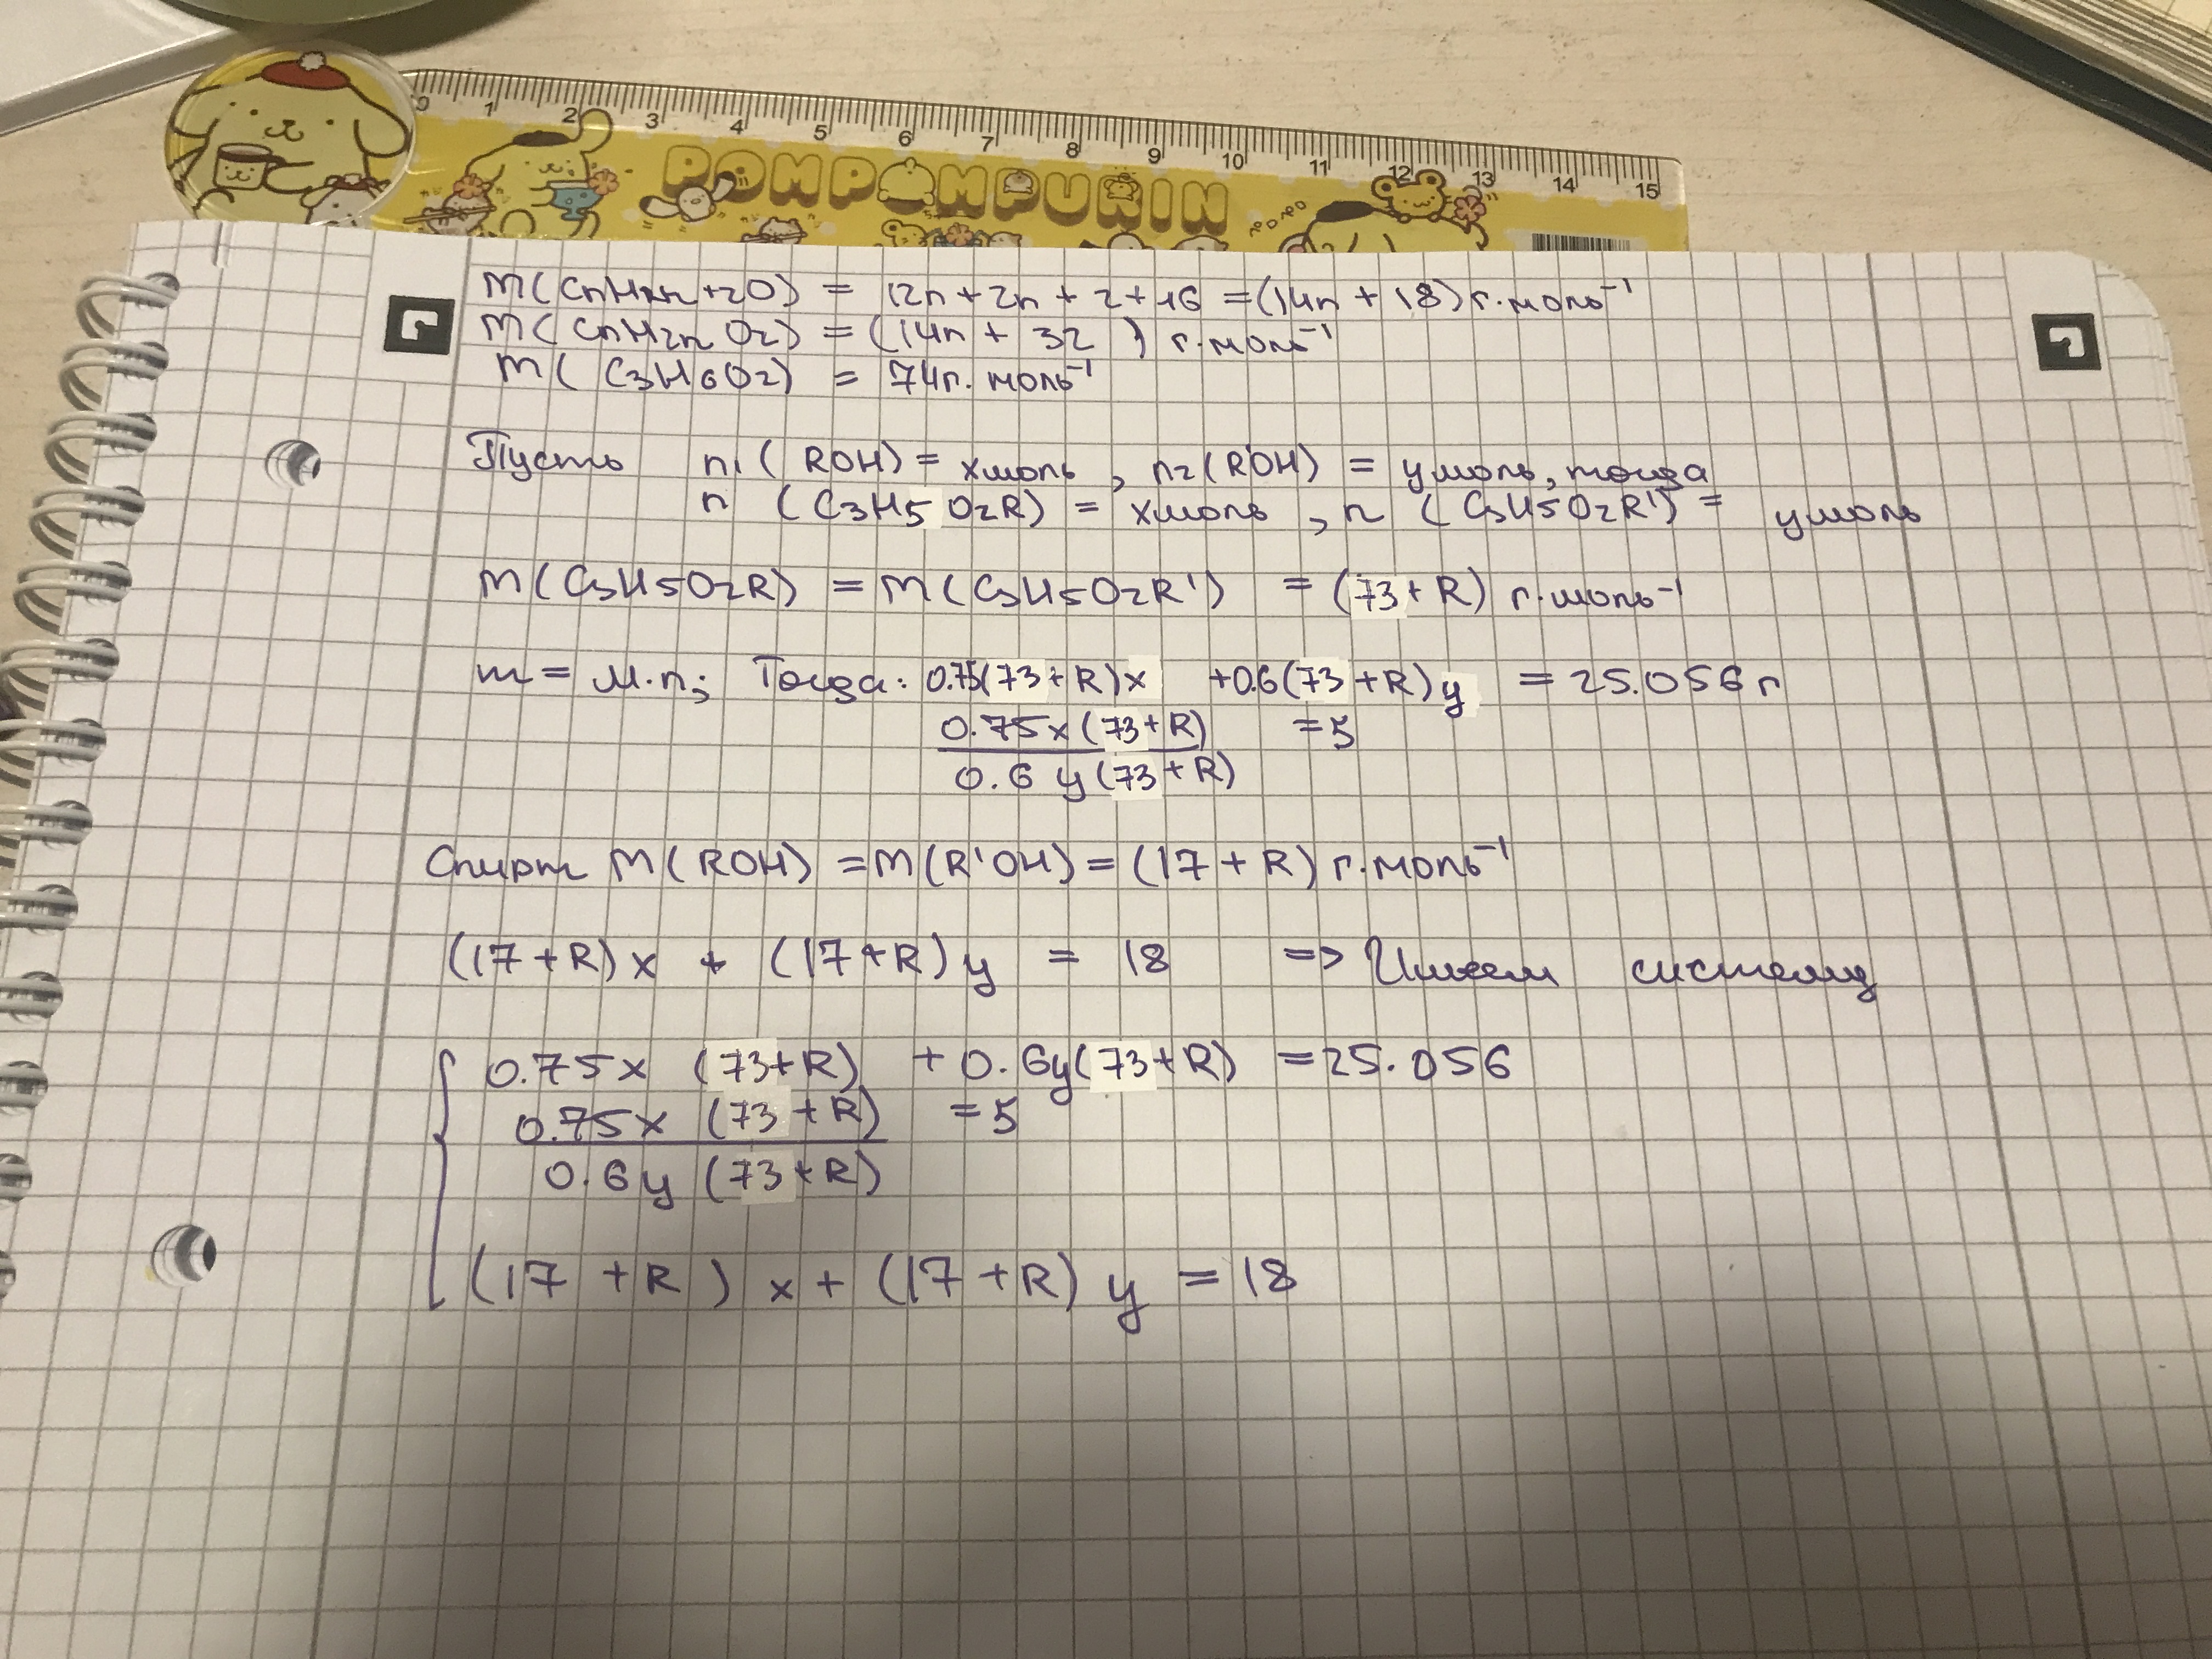 0 1 2 3 4 5 6 7 8 9 10 11 12 13 14 15
POMPOMPURIN
M(CnH2n+2O) = 12n + 2n + 2 + 16 = (14n + 18) г.моль⁻¹
M(CnH2nO2) = (14n + 32) г.моль⁻¹
M(C3H6O2) = 74г.моль⁻¹
Пусть n1(ROH) = xмоль, n2(R'OH) = yмоль, тогда
n (C3H5O2R) = xмоль, n (C3H5O2R') = yмоль
M(C3H5O2R) = M(C3H5O2R') = (73+R) г.моль⁻¹
m = M.n; Тогда: 0.75(73+R)x + 0.6(73+R)y = 25.056 г
0.75x(73+R) = 5
0.6y(73+R)
Спирт M(ROH) = M(R'OH) = (17+R) г.моль⁻¹
(17+R)x + (17+R)y = 18 => Имеем систему
0.75x (73+R) + 0.6y(73+R) = 25.056
0.75x (73+R) = 5
0.6y (73+R)
(17+R) x + (17+R) y = 18